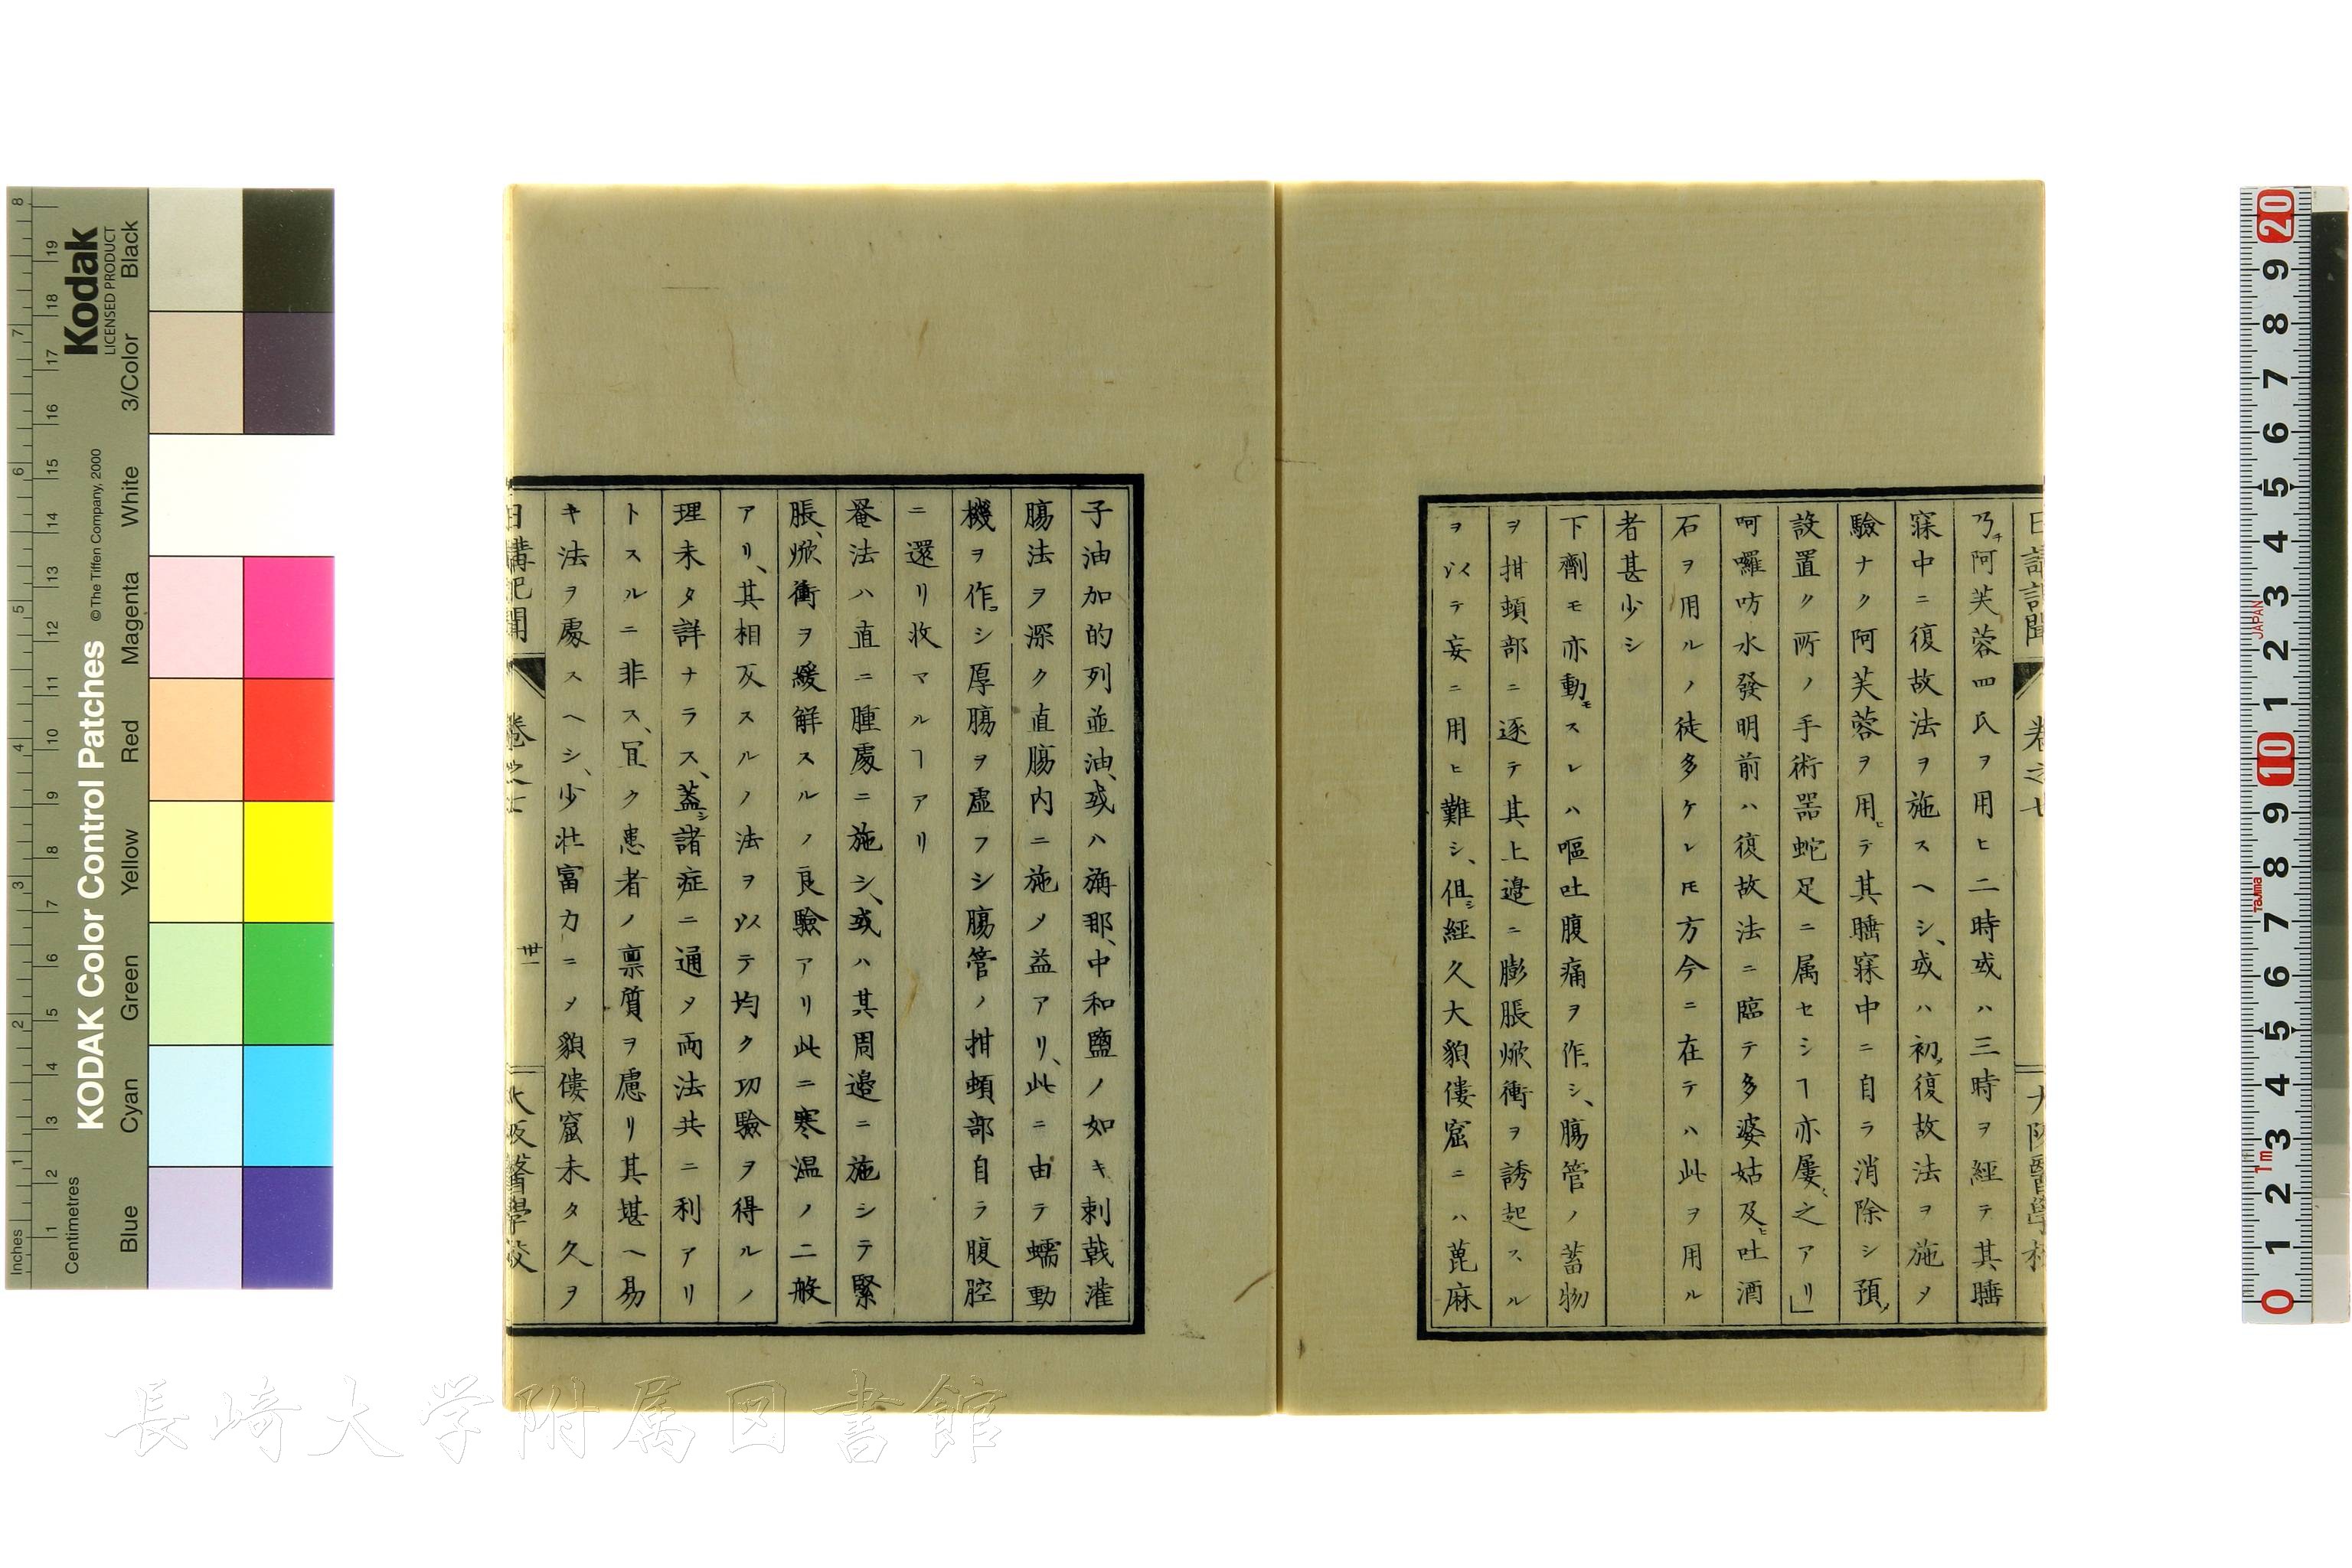 日講記聞 卷之七 大阪醫學校
乃チ阿芙蓉四氏ヲ用ヒ二時或ハ三時ヲ經テ其睡
寐中ニ復故法ヲ施スヘシ、或ハ初メ復故法ヲ施メ
驗ナク阿芙蓉ヲ用ヒテ其睡寐中ニ自ラ消除シ預メ
設置ク所ノ手術器蛇足ニ属セシヿ亦屢〻之アリ」
呵囉吩水發明前ハ復故法ニ臨テ多婆姑及ヒ吐酒
石ヲ用ルノ徒多ケレ𪜈方今ニ在テハ此ヲ用ル
者甚少シ
下劑モ亦動モスレハ嘔吐腹痛ヲ作シ、膓管ノ蓄物
ヲ拑頓部ニ逐テ其上邉ニ膨脹焮衝ヲ誘起スル
ヲ以テ妄ニ用ヒ難シ、但シ經久大貌僂窟ニハ蓖麻
子油加的列並油、或ハ旃那、中和鹽ノ如キ刺戟灌
膓法ヲ深ク直膓内ニ施メ益アリ、此ニ由テ蠕動
機ヲ作シ厚膓ヲ虚フシ膓管ノ拑頓部自ラ腹腔
ニ還リ收マルヿアリ
罨法ハ直ニ腫處ニ施シ、或ハ其周邉ニ施シテ緊
脹、焮衝ヲ緩解スルノ良驗アリ此ニ寒温ノ二般
アリ、其相反スルノ法ヲ以テ均ク功驗ヲ得ルノ
理未タ詳ナラス、蓋シ諸症ニ通メ両法共ニ利アリ
トスルニ非ス、冝ク患者ノ禀質ヲ慮リ其堪ヘ易
キ法ヲ處スヘシ、少壮富力ニメ貌僂窟未タ久ヲ
日講記聞 卷之七 丗一 大阪醫學校
Kodak
LICENSED PRODUCT
KODAK Color Control Patches
©The Tiffen Company, 2000
Inches
Centimetres
Blue Cyan Green Yellow Red Magenta White 3/Color Black
1 2 3 4 5 6 7 8
1 2 3 4 5 6 7 8 9 10 11 12 13 14 15 16 17 18 19
20 9 8 7 6 5 4 3 2 1 10 9 8 7 6 5 4 3 2 1 0
JAPAN
Tajima
1m
長崎大学附属図書館